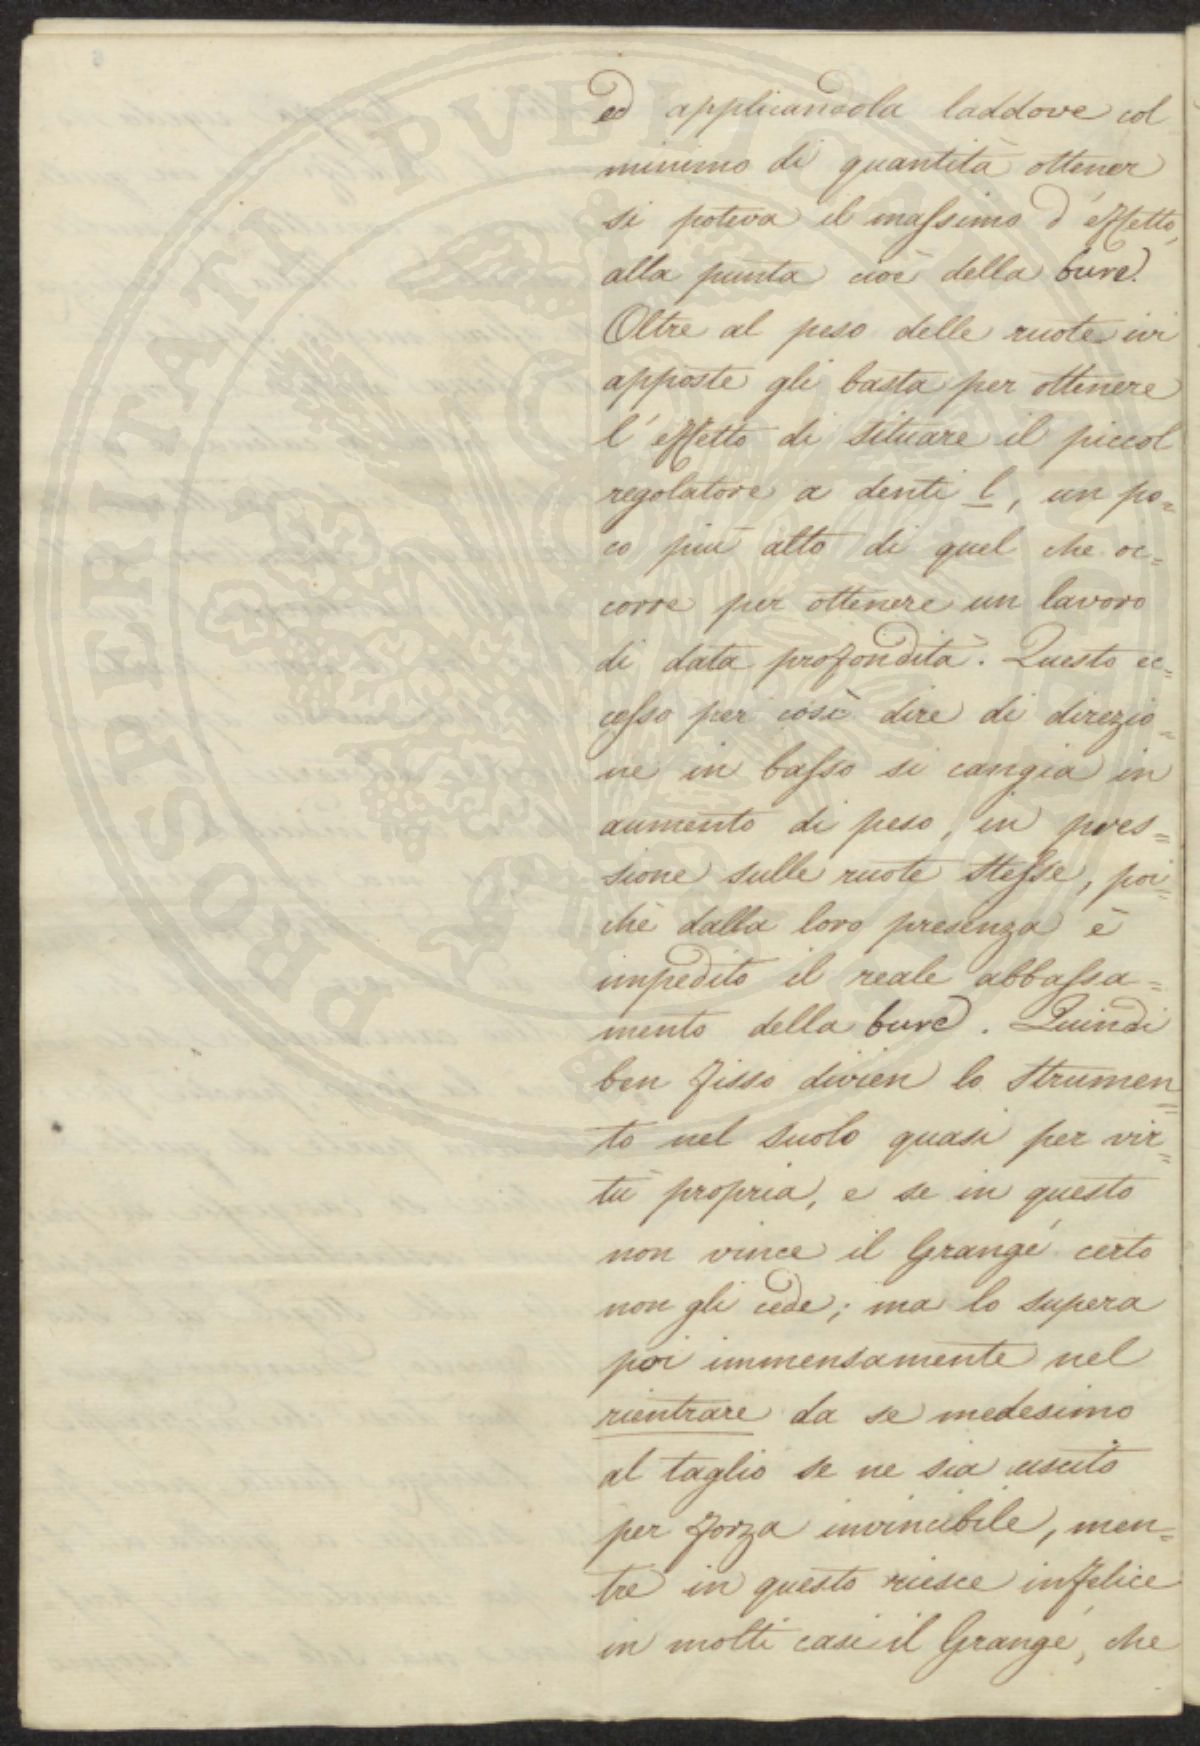 ed applicandola laddove col
minimo di quantità ottener
si poteva il massimo d'effetto,
alla punta cioè della bure.
Oltre al peso delle ruote ivi
apposte gli basta per ottenere
l'effetto di situare il piccol
regolatore a denti l, un po=
co più alto di quel che oc=
corre per ottenere un lavoro
di data profondità. Questo ec=
cesso per così dire di direzio=
ne in basso si cangia in
aumento di peso, in pres=
sione sulle ruote stesse, poi=
chè dalla loro presenza è
impedito il reale abbassa=
mento della bure. Quindi
ben fisso divien lo strumen=
to nel suolo quasi per vir=
tù propria, e se in questo
non vince il Grangé certo
non gli cede; ma lo supera
poi immensamente nel
rientrare da se medesimo
al taglio se ne sia uscito
per forza invincibile, men=
tre in questo riesce infelice
in molti casi il Grangé, che
PROSPERITATI PVBLICAE